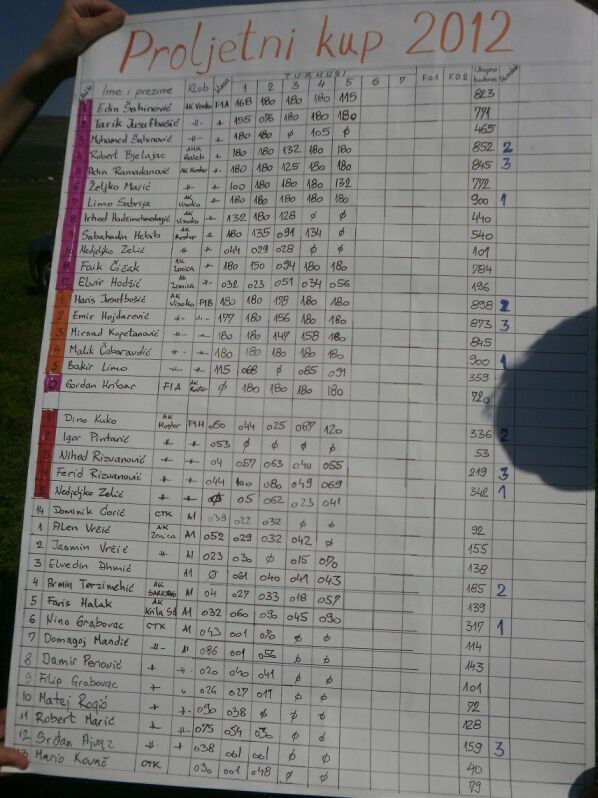 Proljetni kup 2012
TURNUSI
Ime i prezime Klub 1 2 3 4 5 6 7 F.O.1 F.O.2 Ukupno bodova
Edin Šahinović AK Visoko F1A 168 180 180 180 115 823
2 Tarik Jusufbašić -||- 155 076 180 180 180 771
3 Muhamed Šahinović -||- 180 180 Ø 105 Ø 465
4 Robert Bjelajac Galeb 180 180 132 180 180 852 2
5 Adin Ramadanović AK Mostar 180 180 125 180 180 845 3
6 Željko Marić 100 180 180 180 132 772
7 Limo Sabrija AK Visoko 180 180 180 180 180 900 1
8 Irhad AK Visoko 132 180 128 Ø Ø 440
9 Sabahudin AK Mostar 180 135 091 134 Ø 540
10 Nedjeljko Zelić 044 029 028 Ø Ø 101
11 Faik Čižak AK Zenica 180 150 094 180 180 784
12 Elvir Hodžić AK Zenica 032 023 051 034 056 196
1 Haris Jusufbašić AK Visoko F1B 180 180 178 180 180 898 2
2 Emir Hojdarević -||- 177 180 156 180 180 873 3
3 Mirsad Kapetanović -||- 180 180 147 158 180 845
4 Malik Čabaravdić -||- 180 180 180 180 180 900 1
5 Bakir Limo 115 068 Ø 085 091 359
Gordan Hribar F1A AK Mostar Ø 180 180 180 180 720
1 Dino Kuko AK Mostar F1H 060 044 025 087 120 336 2
2 Igor Pintarić 053 Ø Ø Ø Ø 53
3 Nihad Rizvanović 04 057 063 040 055 219 3
4 Ferid Rizvanović 044 100 080 049 069 342 1
5 Nedjeljko Zelić Ø 05 062 023 041
14 Dominik Ćorić CTK A1 039 022 032 Ø Ø 92
1 Alen Vržić AK Zenica A1 052 029 032 042 Ø 155
2 Jasmin Vržić A1 023 030 Ø 015 070 138
3 Elvedin Ahmić A1 Ø 061 040 041 043 185 2
4 Armin Terzimehić AK A1 04 027 033 018 057 139
5 Faris Halak AK Krila A1 032 060 090 045 090 317 1
6 Nino Grabovac CTK A1 043 001 070 Ø Ø 114
7 Domagoj Mandić -||- A1 086 001 056 Ø Ø 143
8 Damir Penović 020 040 041 Ø Ø 101
9 Filip Grabovac 026 027 019 Ø Ø 72
10 Matej Rogić 090 038 Ø Ø Ø 128
11 Robert Marić 075 054 030 Ø Ø 159 3
12 Srđan 038 001 001 Ø Ø 40
13 Mario Kovač CTK 030 001 048 Ø Ø 79